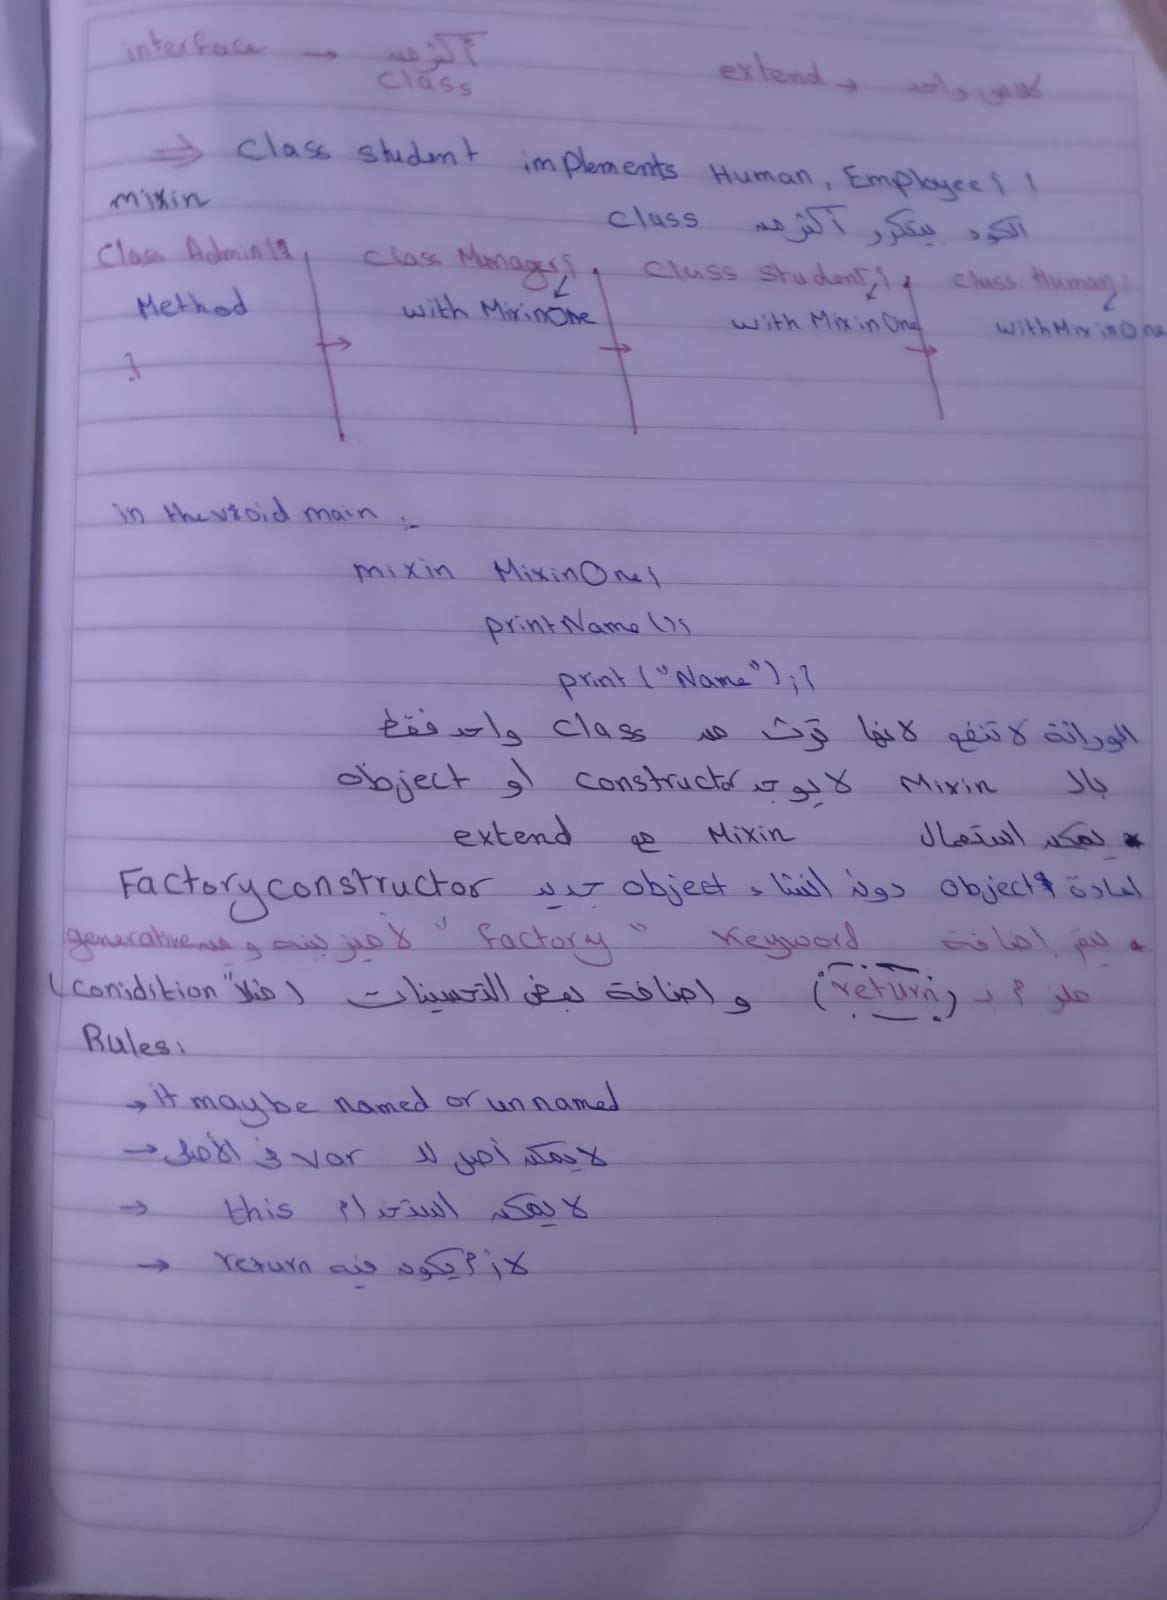 interface → أكثر من class
extend → كلاس واحد
⇒ class student implements Human, Employee{ }
الكود بيتكرر أكثر من class
mixin
Class Admin(){ class Manager{ class Student{ class Human{
Method with MixinOne with MixinOne with MixinOne
}
in the void main :-
mixin MixinOne{
printName(){
print ("Name");}
الوراثة لا تنفع لانها ترث من class واحد فقط
بالـ Mixin لا يوجد constructor أو object
* يمكن استعمال Mixin مع extend
Factory constructor اعادة object دون انشاء object جديد
* يتم اضافة Keyword "factory" لأميز بينه وبين generative
ملزم بـ (return) و اضافة بعض التحسينات (مثلا "conidition
Rules:
→ it maybe named or unnamed
→ لا يمكن أصل لـ var في الأصل
→ لا يمكن استخدام this
→ لازم يكون فيه return